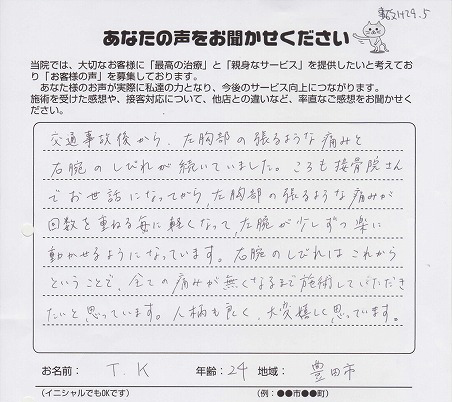 事故H29.5
あなたの声をお聞かせください
当院では、大切なお客様に「最高の治療」と「親身なサービス」を提供したいと考えてお
り「お客様の声」を募集しております。
あなた様のお声が実際に私達の力となり、今後のサービス向上につながります。
施術を受けた感想や、接客対応について、他店との違いなど、率直なご感想をお聞かせく
ださい。
交通事故後から、左胸部の張るような痛みと
右腕のしびれが続いていました。ころも接骨院さん
でお世話になってから、左胸部の張るような痛みが
回数を重ねる毎に軽くなって、左腕が少しずつ楽に
動かせるようになっています。右腕のしびれはこれから
ということで、全ての痛みが無くなるまで施術していただき
たいと思っています。人柄も良く、大変嬉しく思っています。
お名前: T.K 年齢: 24 地域: 豊田市
(イニシャルでもOKです) (例:●●市●●町)